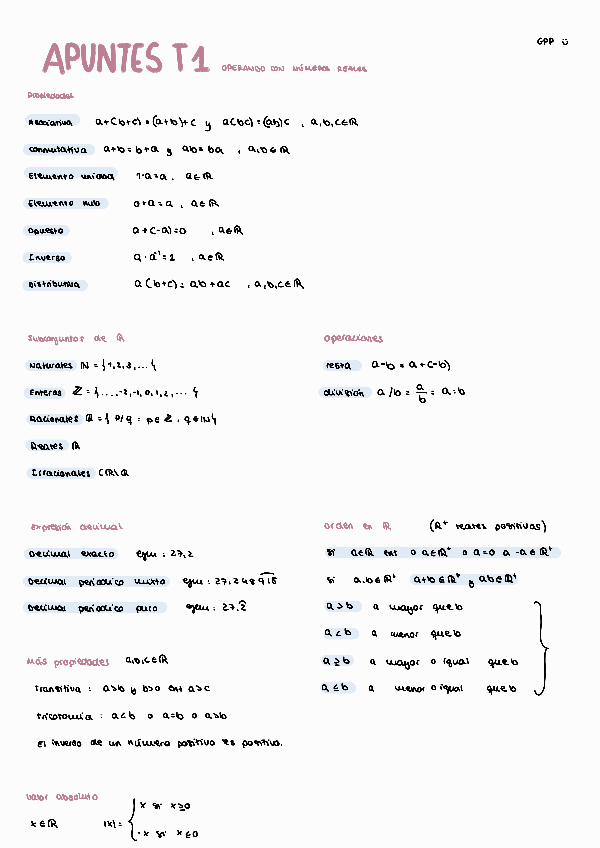 GPP ☺
APUNTES T1 OPERANDO CON NÚMEROS REALES
Propiedades
Asociativa a+(b+c)=(a+b)+c y a(bc)=(ab)c , a,b,c∈ℝ
Conmutativa a+b=b+a y ab=ba , a,b∈ℝ
Elemento unidad 1·a=a , a∈ℝ
Elemento nulo 0+a=a , a∈ℝ
Opuesto a+(-a)=0 , a∈ℝ
Inverso a·a⁻¹=1 , a∈ℝ
Distributiva a(b+c)=ab+ac , a,b,c∈ℝ
Subconjuntos de ℝ
Naturales ℕ={1,2,3,...}
Enteros ℤ={...,-2,-1,0,1,2,...}
Racionales ℚ={p/q : p∈ℤ, q∈ℕ}
Reales ℝ
Irracionales (ℝ\ℚ
operaciones
resta a-b=a+(-b)
división a/b = a/b = a:b
expresión decimal
Decimal exacto ejm: 27,2
Decimal periódico mixto ejm: 27,248915
Decimal periódico puro ejm: 27,2
orden en ℝ (ℝ⁺ reales positivos)
si a∈ℝ ent o a∈ℝ⁺ o a=0 o -a∈ℝ⁺
si a,b∈ℝ⁺ a+b∈ℝ⁺ y ab∈ℝ⁺
a>b a mayor que b
a<b a menor que b
a≥b a mayor o igual que b
a≤b a menor o igual que b
Más propiedades a,b,c∈ℝ
Transitiva : a>b y b>c ent a>c
Tricotomía : a<b o a=b o a>b
El inverso de un número positivo es positivo.
Valor absoluto
x∈ℝ |x|= { x si x≥0
-x si x≤0